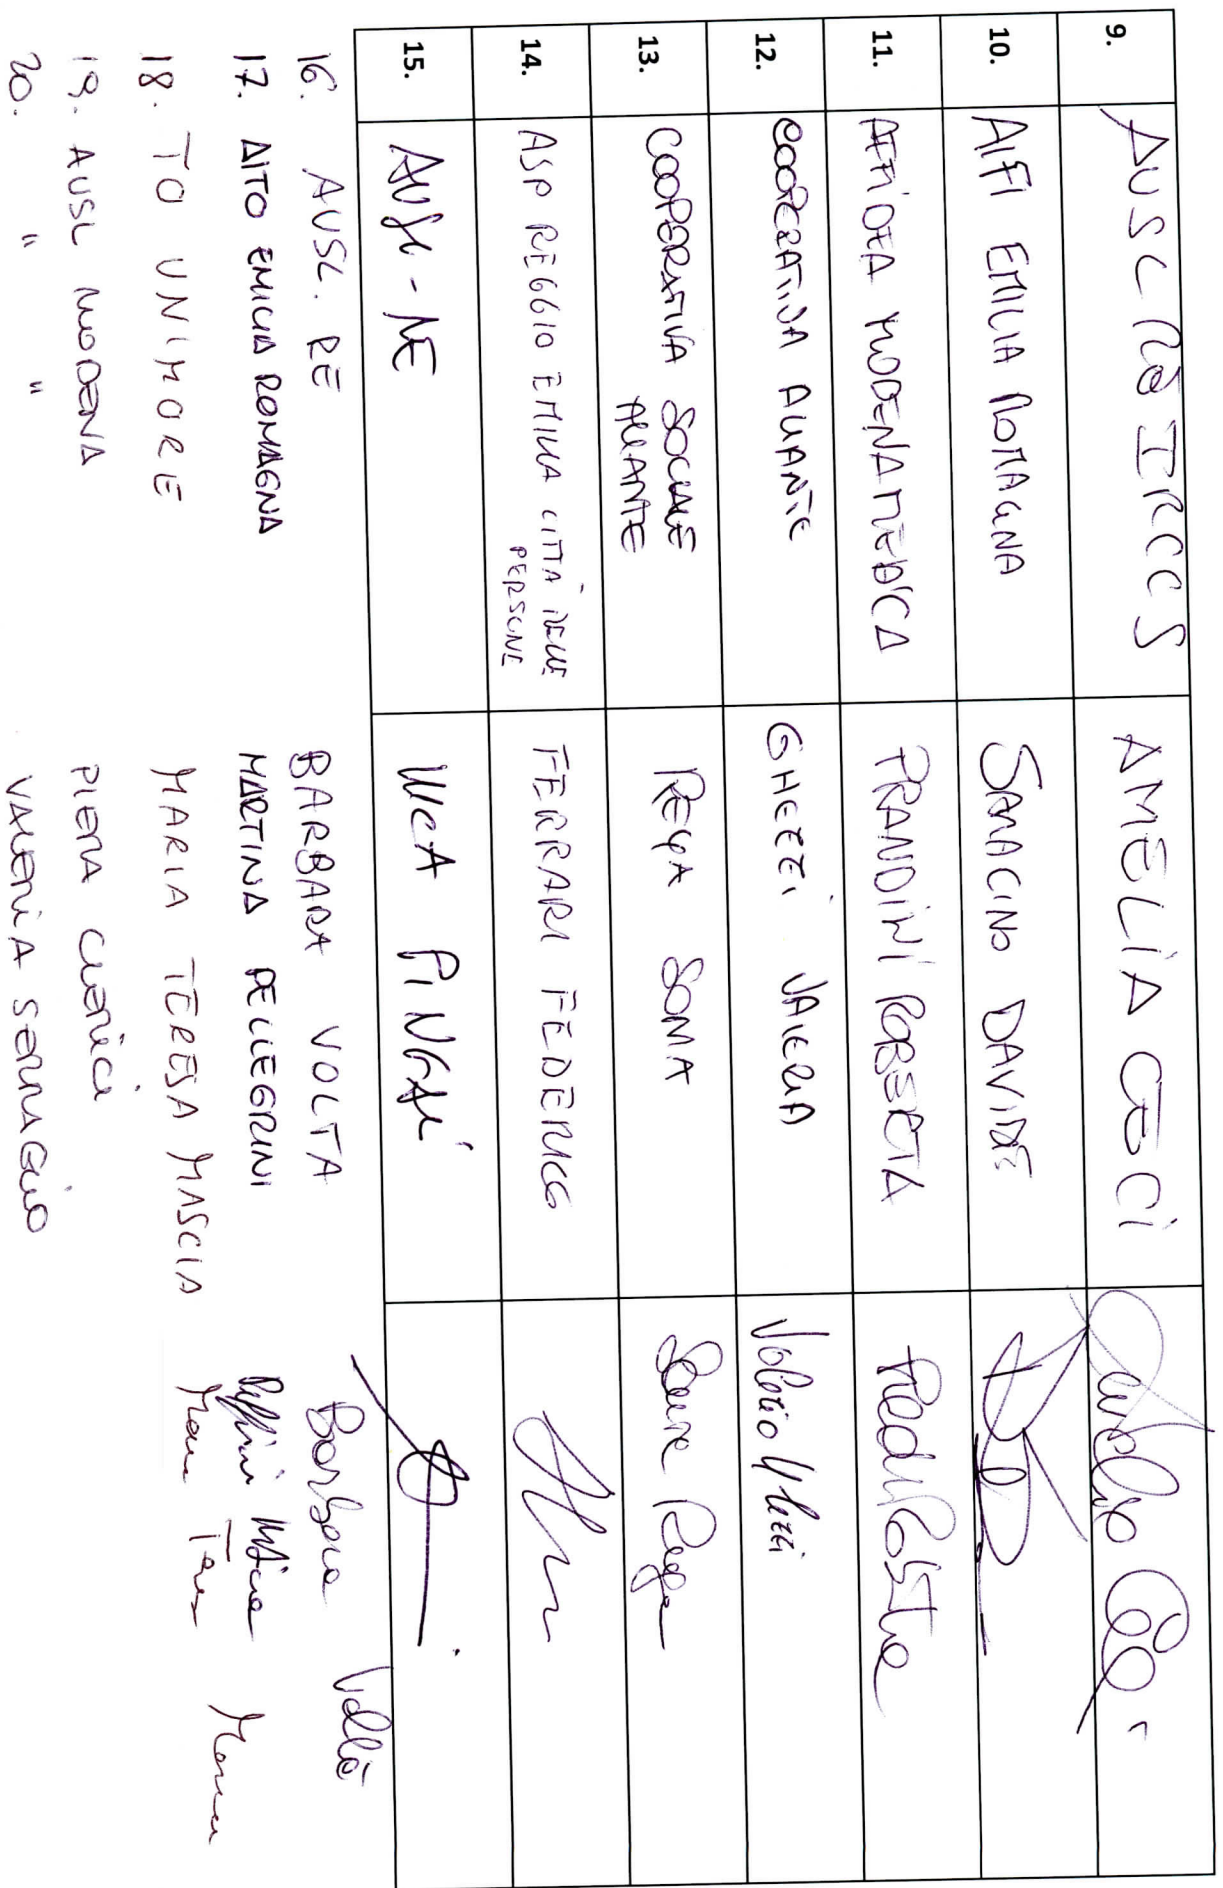 9. AUSL RE IRCCS AMELIA CECI
10. AIFI EMILIA ROMAGNA SARACINO DAVIDE
11. AFFIDEA MODENAMEDICA PRANDINI ROBERTA
12. COOPERATIVA ALIANTE GHEZZI VALERIA Valeria Ghezzi
13. COOPERATIVA SOCIALE
ALIANTE REGA SONIA Sonia Rega
14. ASP REGGIO EMILIA CITTÀ DELLE
PERSONE FERRARI FEDERICO
15. AUSL - RE LUCA PINGANI
16. AUSL. RE BARBARA VOLTA Barbara Volta
17. AITO EMILIA ROMAGNA MARTINA PELLEGRINI
18. TO UNIMORE MARIA TERESA MASCIA Maria Teresa Mascia
19. AUSL MODENA PIERA CLERICI
20. " " VALERIA SERRAGLIO